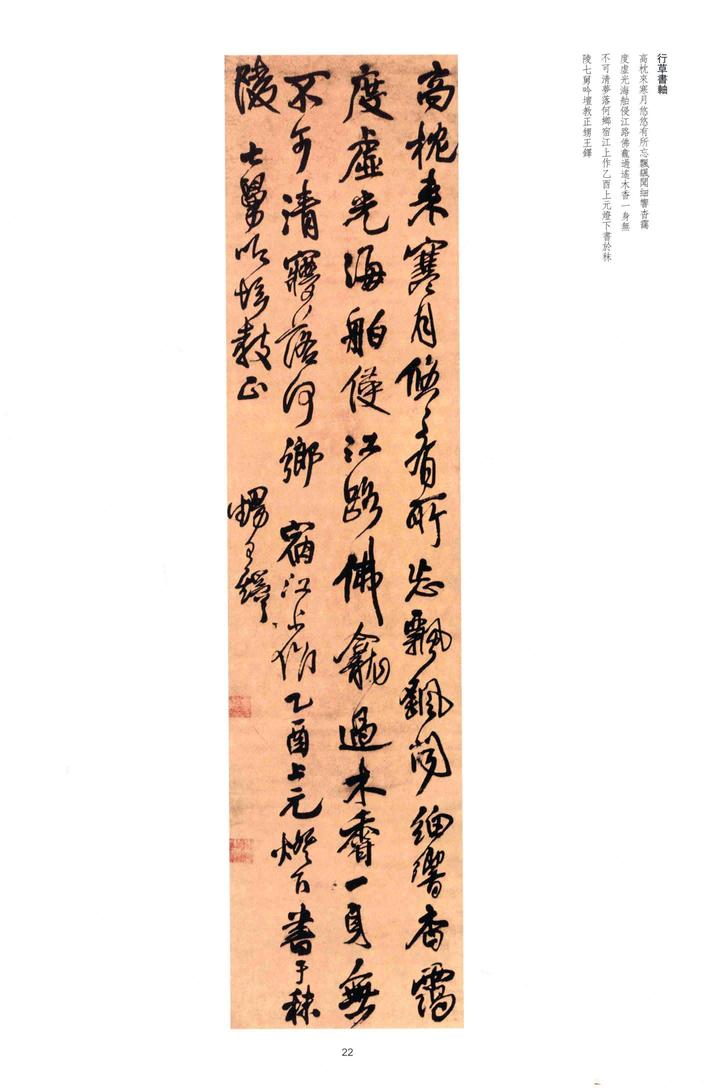 行草書軸
高枕來寒月悠悠有所忘飄飄聞細響杳靄
度虛光海舶侵江路佛龕過遙木香一身無
不可清夢落何鄉宿江上作乙酉上元燈下書於秣
陵七舅吟壇教正甥王鐸
高枕來寒月悠々有所忘飄飄聞細響杳靄
度虛光海舶侵江路佛龕過木香一身無
不可清夢落何鄉 宿江上作乙酉上元燈下書于秣
陵 七舅吟壇教正 甥王鐸
22